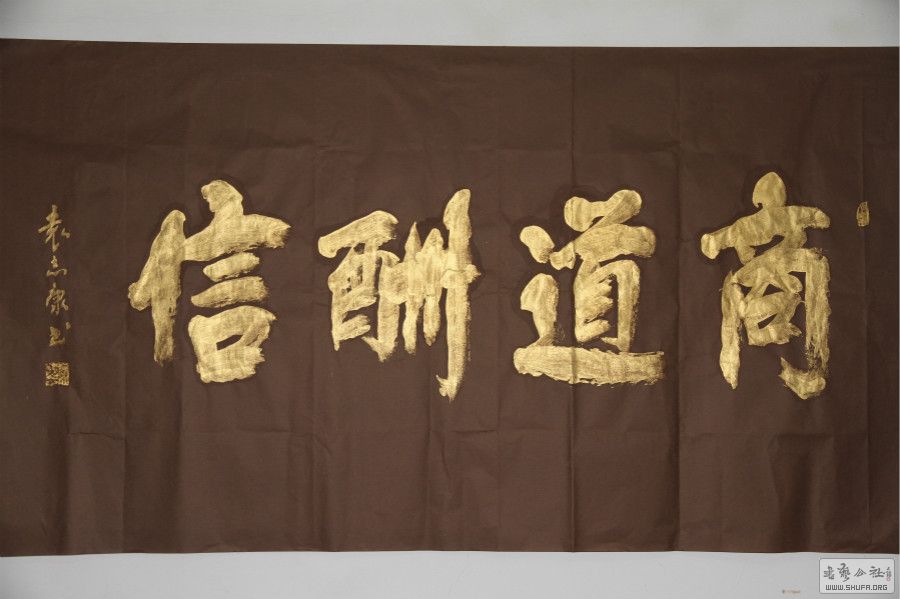 商道酬信
袁志康书
书艺公社
WWW.SHUFA.ORG